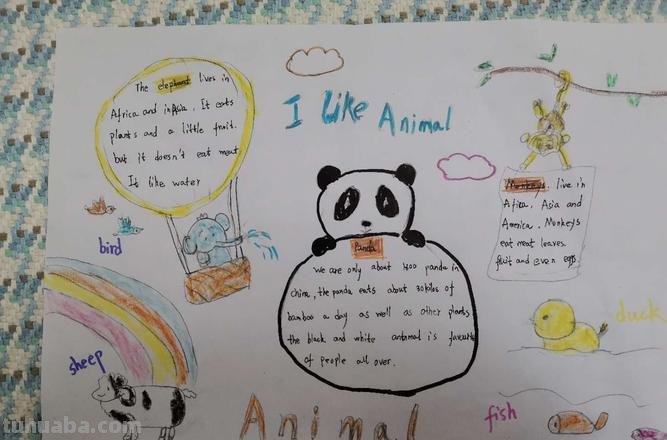 I Like Animal
The elephant lives in
Africa and in Asia. It eats
plants and a little fruit.
but it doesn't eat meat
It like water
bird
Panda
we are only about panda in
china, the panda eats about 30kilos of
bamboo a day as well as other plants
the black and white animal is favourite
of people all over.
Monkeys live in
Africa, Asia and
America. Monkeys
eat meat leaves
fruit and even eggs
duck
sheep
fish
Animal
tuhuaba.com